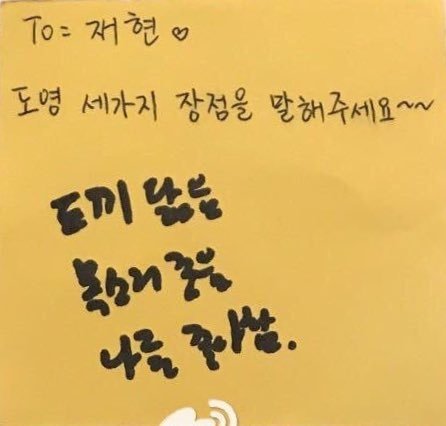 To = 재현 ♡
도영 세가지 장점을 말해주세요~~
토끼 닮음
목소리 좋음
나를 좋아함.